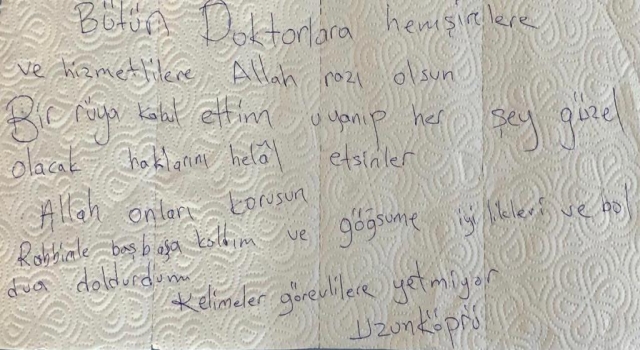 Bütün Doktorlara hemşirelere
ve hizmetlilere Allah razı olsun
Bir rüya kabul ettim uyanıp her şey güzel
olacak haklarını helâl etsinler
Allah onları korusun
Rabbimle başbaşa kaldım ve göğsume iyilikleri ve bol
dua doldurdum
Kelimeler görevlilere yetmiyor
Uzunköprü